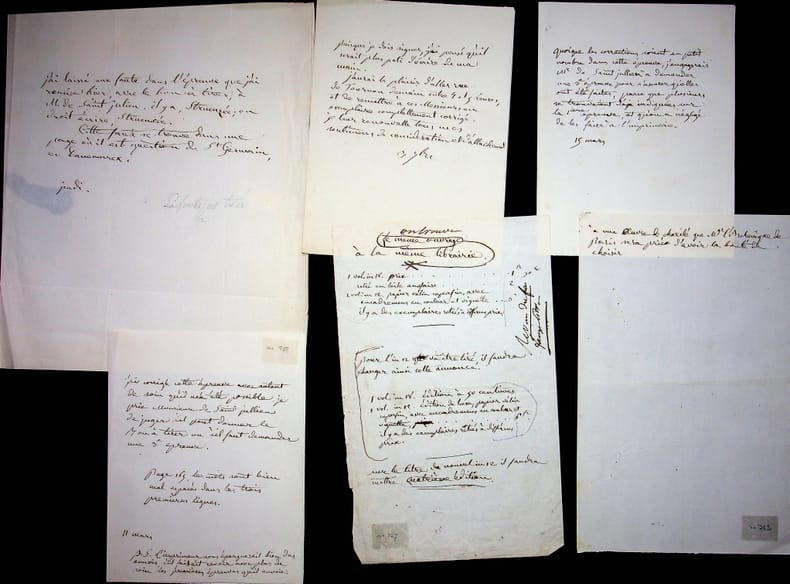 j'ai laissé une faute dans l'épreuve que j'ai
remise hier, avec le bon à tirer, à
M. de Saint julien. il y a, Struenzée, on
doit écrire, Struensée.
Cette faute se trouve dans une
page où il est question de St Germain,
et
jeudi.
puisque je dois signer, j'ai pensé qu'il
serait plus poli d'écrire de ma
main.
j'aurai le plaisir d'aller rue
de Tournon demain entre 4 & 5 heures,
et de remettre à ces Messieurs un
exemplaire complettement corrigé.
je leur renouvelle tous mes
sentiments de considération et d'attachement
13 9bre
quoique les corrections soient en petit
nombre dans cette épreuve, j'engagerais
Mr. de Saint jullien à demander
une 3e épreuve pour s'assurer qu'elles
ont été faites, parce que plusieurs
se trouvaient déjà indiquées sur
la 1ère épreuve, et qu'on a négligé
de les faire à l'imprimerie.
15 mars
on trouve
le même ouvrage
à la même librairie.
1 vol. in 18. prix
relié en toile anglaise
1 vol. in 12. papier vélin superfin, avec
encadremens en couleur et vignette
il y a des exemplaires reliés à différens prix
pour l'in 12 va être tiré, il faudra
changer ainsi cette annonce.
1 vol. in 18. édition à 90 centimes
1 vol. in 12. édition de luxe, papier vélin
superfin, avec encadremens en couleur et
vignette,
il y a des exemplaires reliés à différens
prix.
sur le titre du nouvel in 12 il faudra
mettre quatrième édition.
à une Œuvre de charité que Mr. l'Archevêque de
Paris sera prié d'avoir la bonté de
choisir
j'ai corrigé cette épreuve avec autant
de soin qu'il m'a été possible je
prie Monsieur de Saint jullien
de juger s'il peut donner le
bon à tirer ou s'il faut demander
une 3e épreuve.
page 165 les mots sont bien
mal espacés dans les trois
premières lignes.
11 mars
p. S. l'imprimeur nous épargnerait bien des
ennuis s'il faisait revoir avec plus de
soin les premières épreuves qu'il envoie.